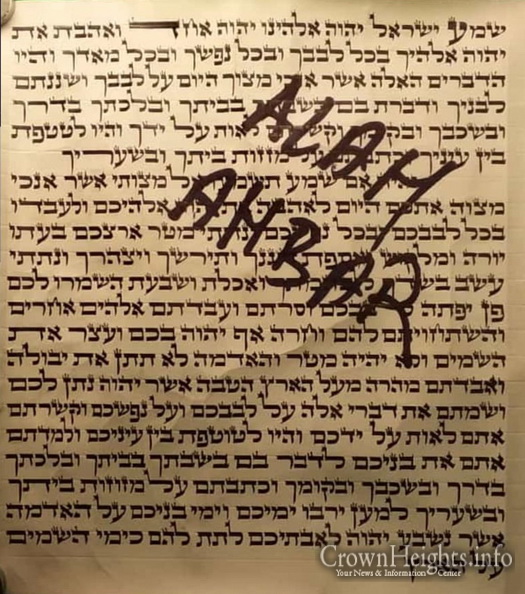 שמע ישראל יהוה אלהינו יהוה אחד ואהבת את
יהוה אלהיך בכל לבבך ובכל נפשך ובכל מאדך והיו
הדברים האלה אשר מצוך היום על לבבך ושננתם
לבניך ודברת בם בביתך ובלכתך בדרך
ובשכבך לאות על ידך והיו לטטפת
בין עיניך מזזות ביתך ובשעריך
אם שמע מצותי אשר אנכי
מצוה אתכם היום אלהיכם ולעבדו
בכל לבבכם מטר ארצכם בעתו
יורה ותירשך ויצהרך ונתתי
עשב ואכלת ושבעת השמרו לכם
פן יפתה וסרתם ועבדתם אלהים אחרים
והשתחויתם להם וחרה אף יהוה בכם ועצר את
השמים ולא יהיה מטר והאדמה לא תתן את יבולה
ואבדתם מהרה מעל הארץ הטבה אשר יהוה נתן לכם
ושמתם את דברי אלה על לבבכם ועל נפשכם וקשרתם
אתם לאות על ידכם והיו לטוטפת בין עיניכם ולמדתם
אתם את בניכם לדבר בם בשבתך בביתך ובלכתך
בדרך ובשכבך ובקומך וכתבתם על מזוזות ביתך
ובשעריך למען ירבו ימיכם וימי בניכם על האדמה
אשר נשבע יהוה לאבתיכם לתת להם כימי השמים
על
ALAH
AHBAR
CrownHeights.info
Your News & Information Center